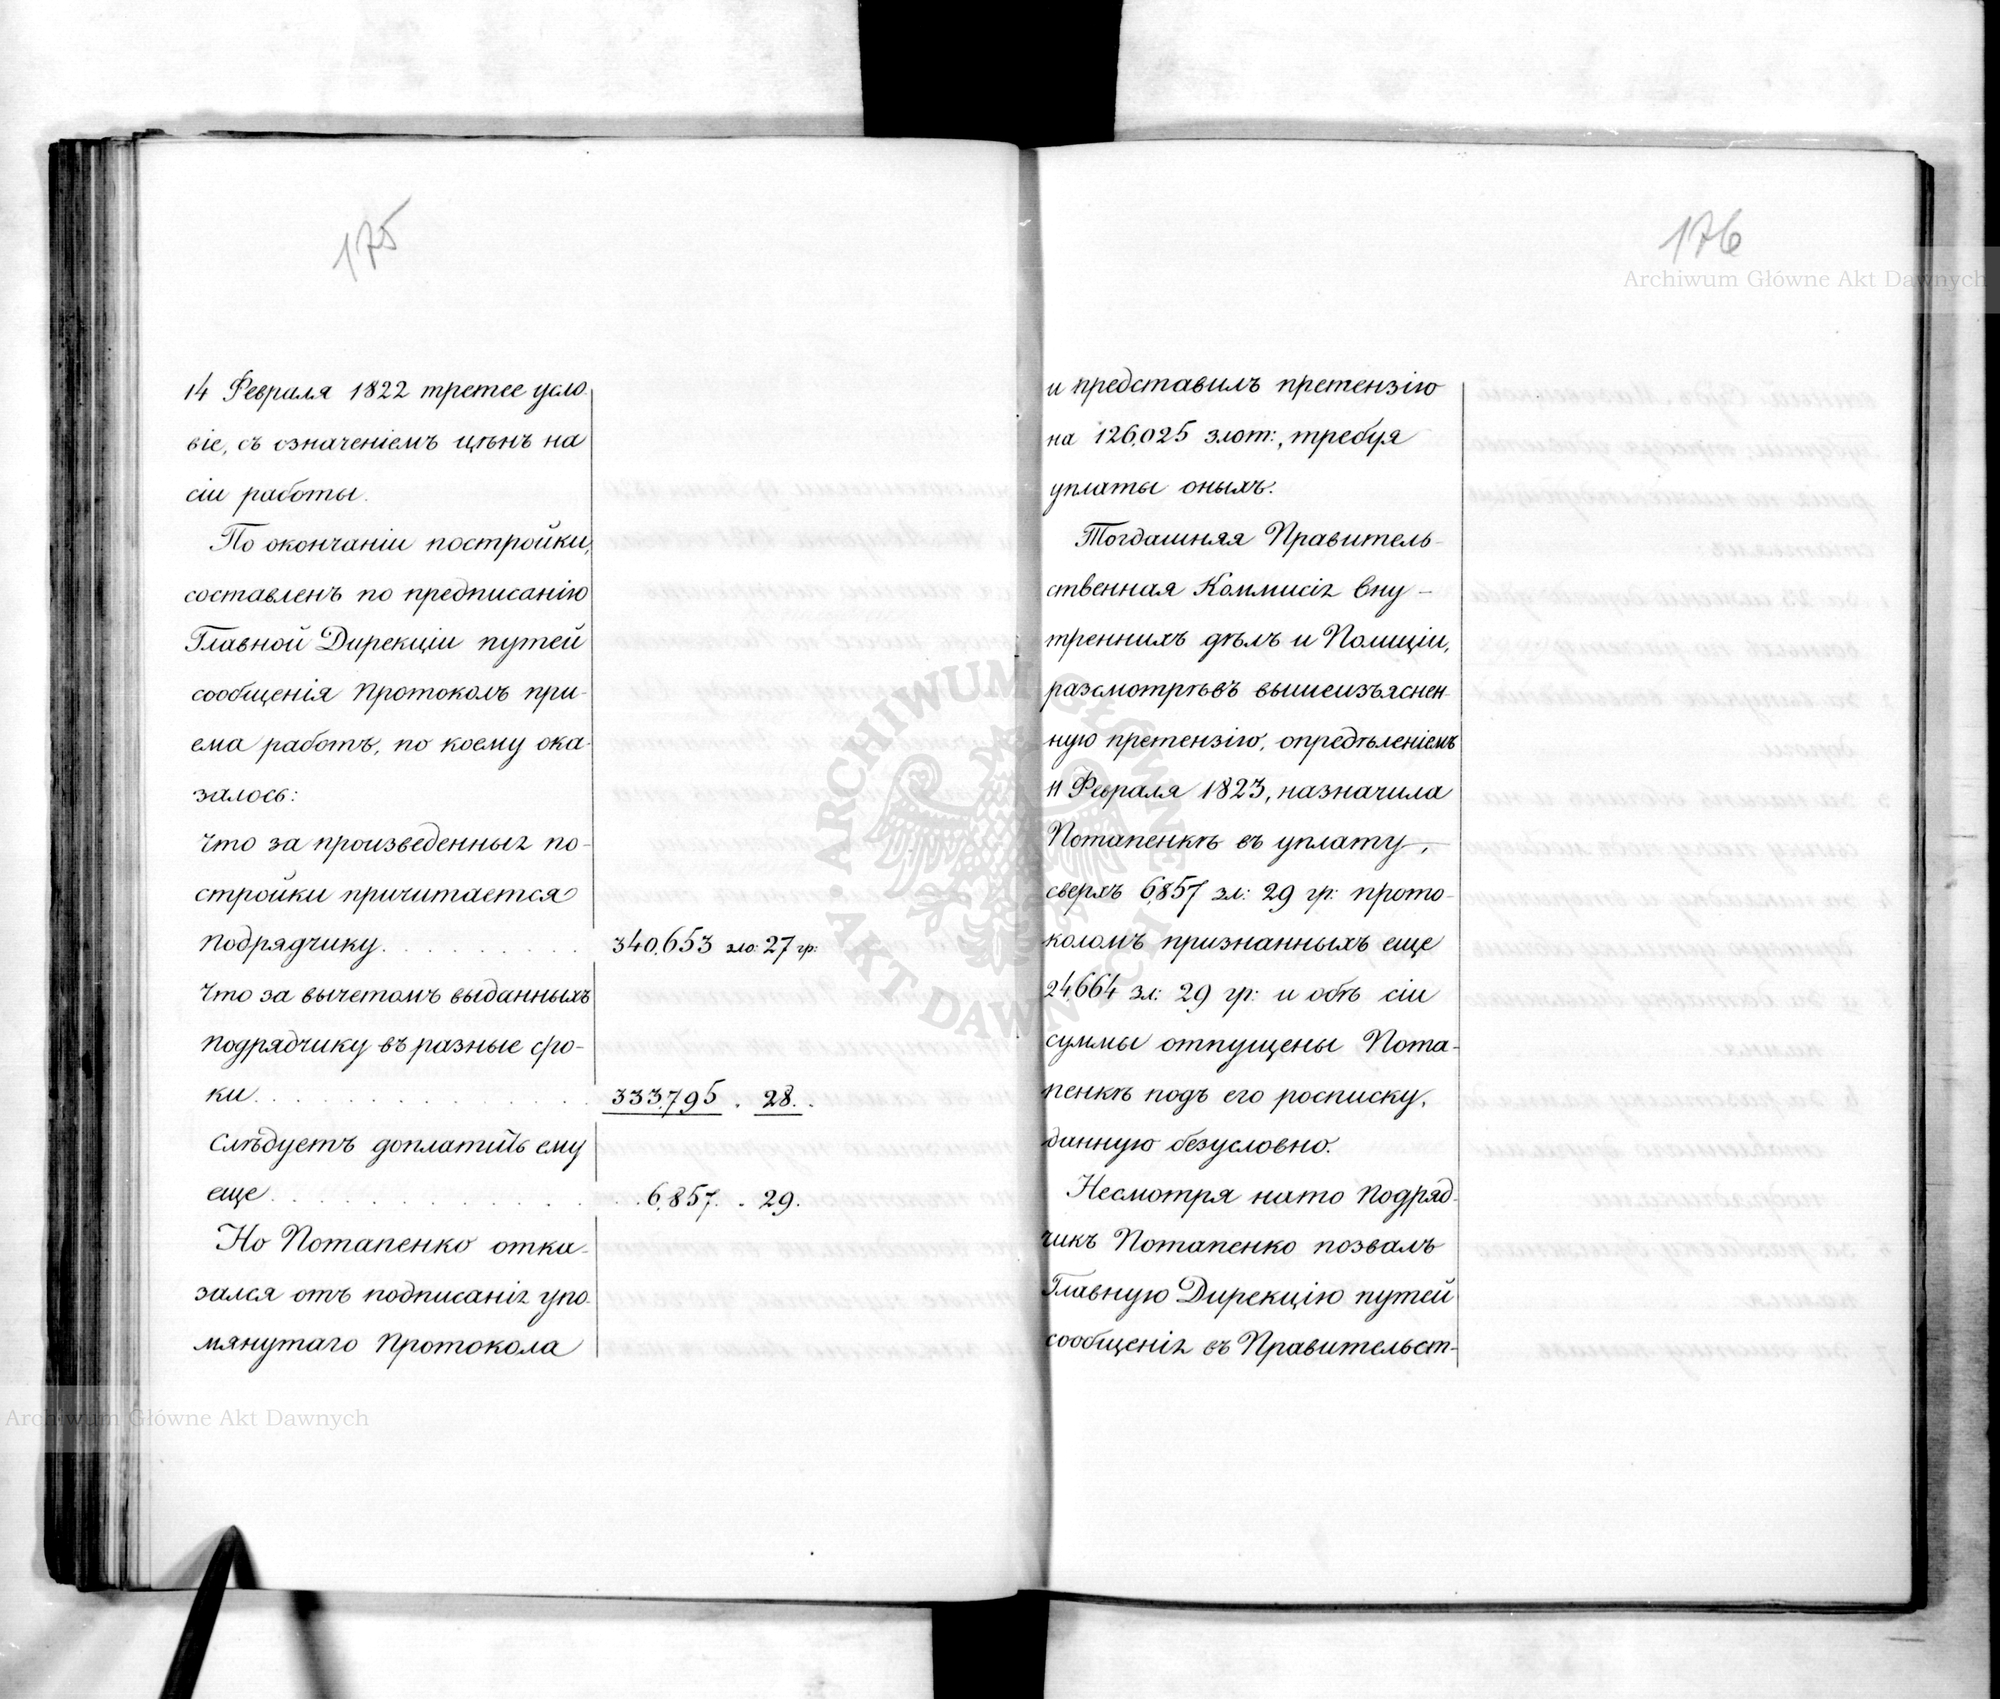 175
14 Февраля 1822 третее усло-
віе, съ означеніемъ цѣнъ на
сіи работы.
По окончаніи постройки,
составленъ по предписанію
Главной Дирекціи путей
сообщенія Протоколъ прі-
ема работъ, по коему ока-
залось:
что за произведенныя по-
стройки причитается
подрядчику. . . . . . . . 340,653 зло: 27 гр:
что за вычетомъ выданныхъ
подрядчику въ разные сро-
ки. . . . . . . . . . . . . 333,795 . 28. .
Слѣдуетъ доплатить ему
еще. . . . . . . . . . . . 6,857. . 29.
Но Потапенко отка-
зался отъ подписанія упо-
мянутаго Протокола
176
и представилъ претензію
на 126,025 злот:, требуя
уплаты оныхъ.
Тогдашняя Правитель-
ственная Коммисія Вну-
треннихъ дѣлъ и Полиціи,
разсмотрѣвъ вышеизъяснен-
ную претензію, опредѣленіемъ
11 Февраля 1823, назначила
Потапенкѣ въ уплату,
сверхъ 6,857 зл: 29 гр: прото-
коломъ признанныхъ еще
24,664 зл: 29 гр: и обѣ сіи
суммы отпущены Пота-
пенкѣ подъ его росписку,
данную безусловно.
Несмотря на то Подряд-
чикъ Потапенко позвалъ
Главную Дирекцію путей
сообщенія въ Правительст-
Archiwum Główne Akt Dawnych
Archiwum Główne Akt Dawnych
ARCHIWUM GŁÓWNE AKT DAWNYCH